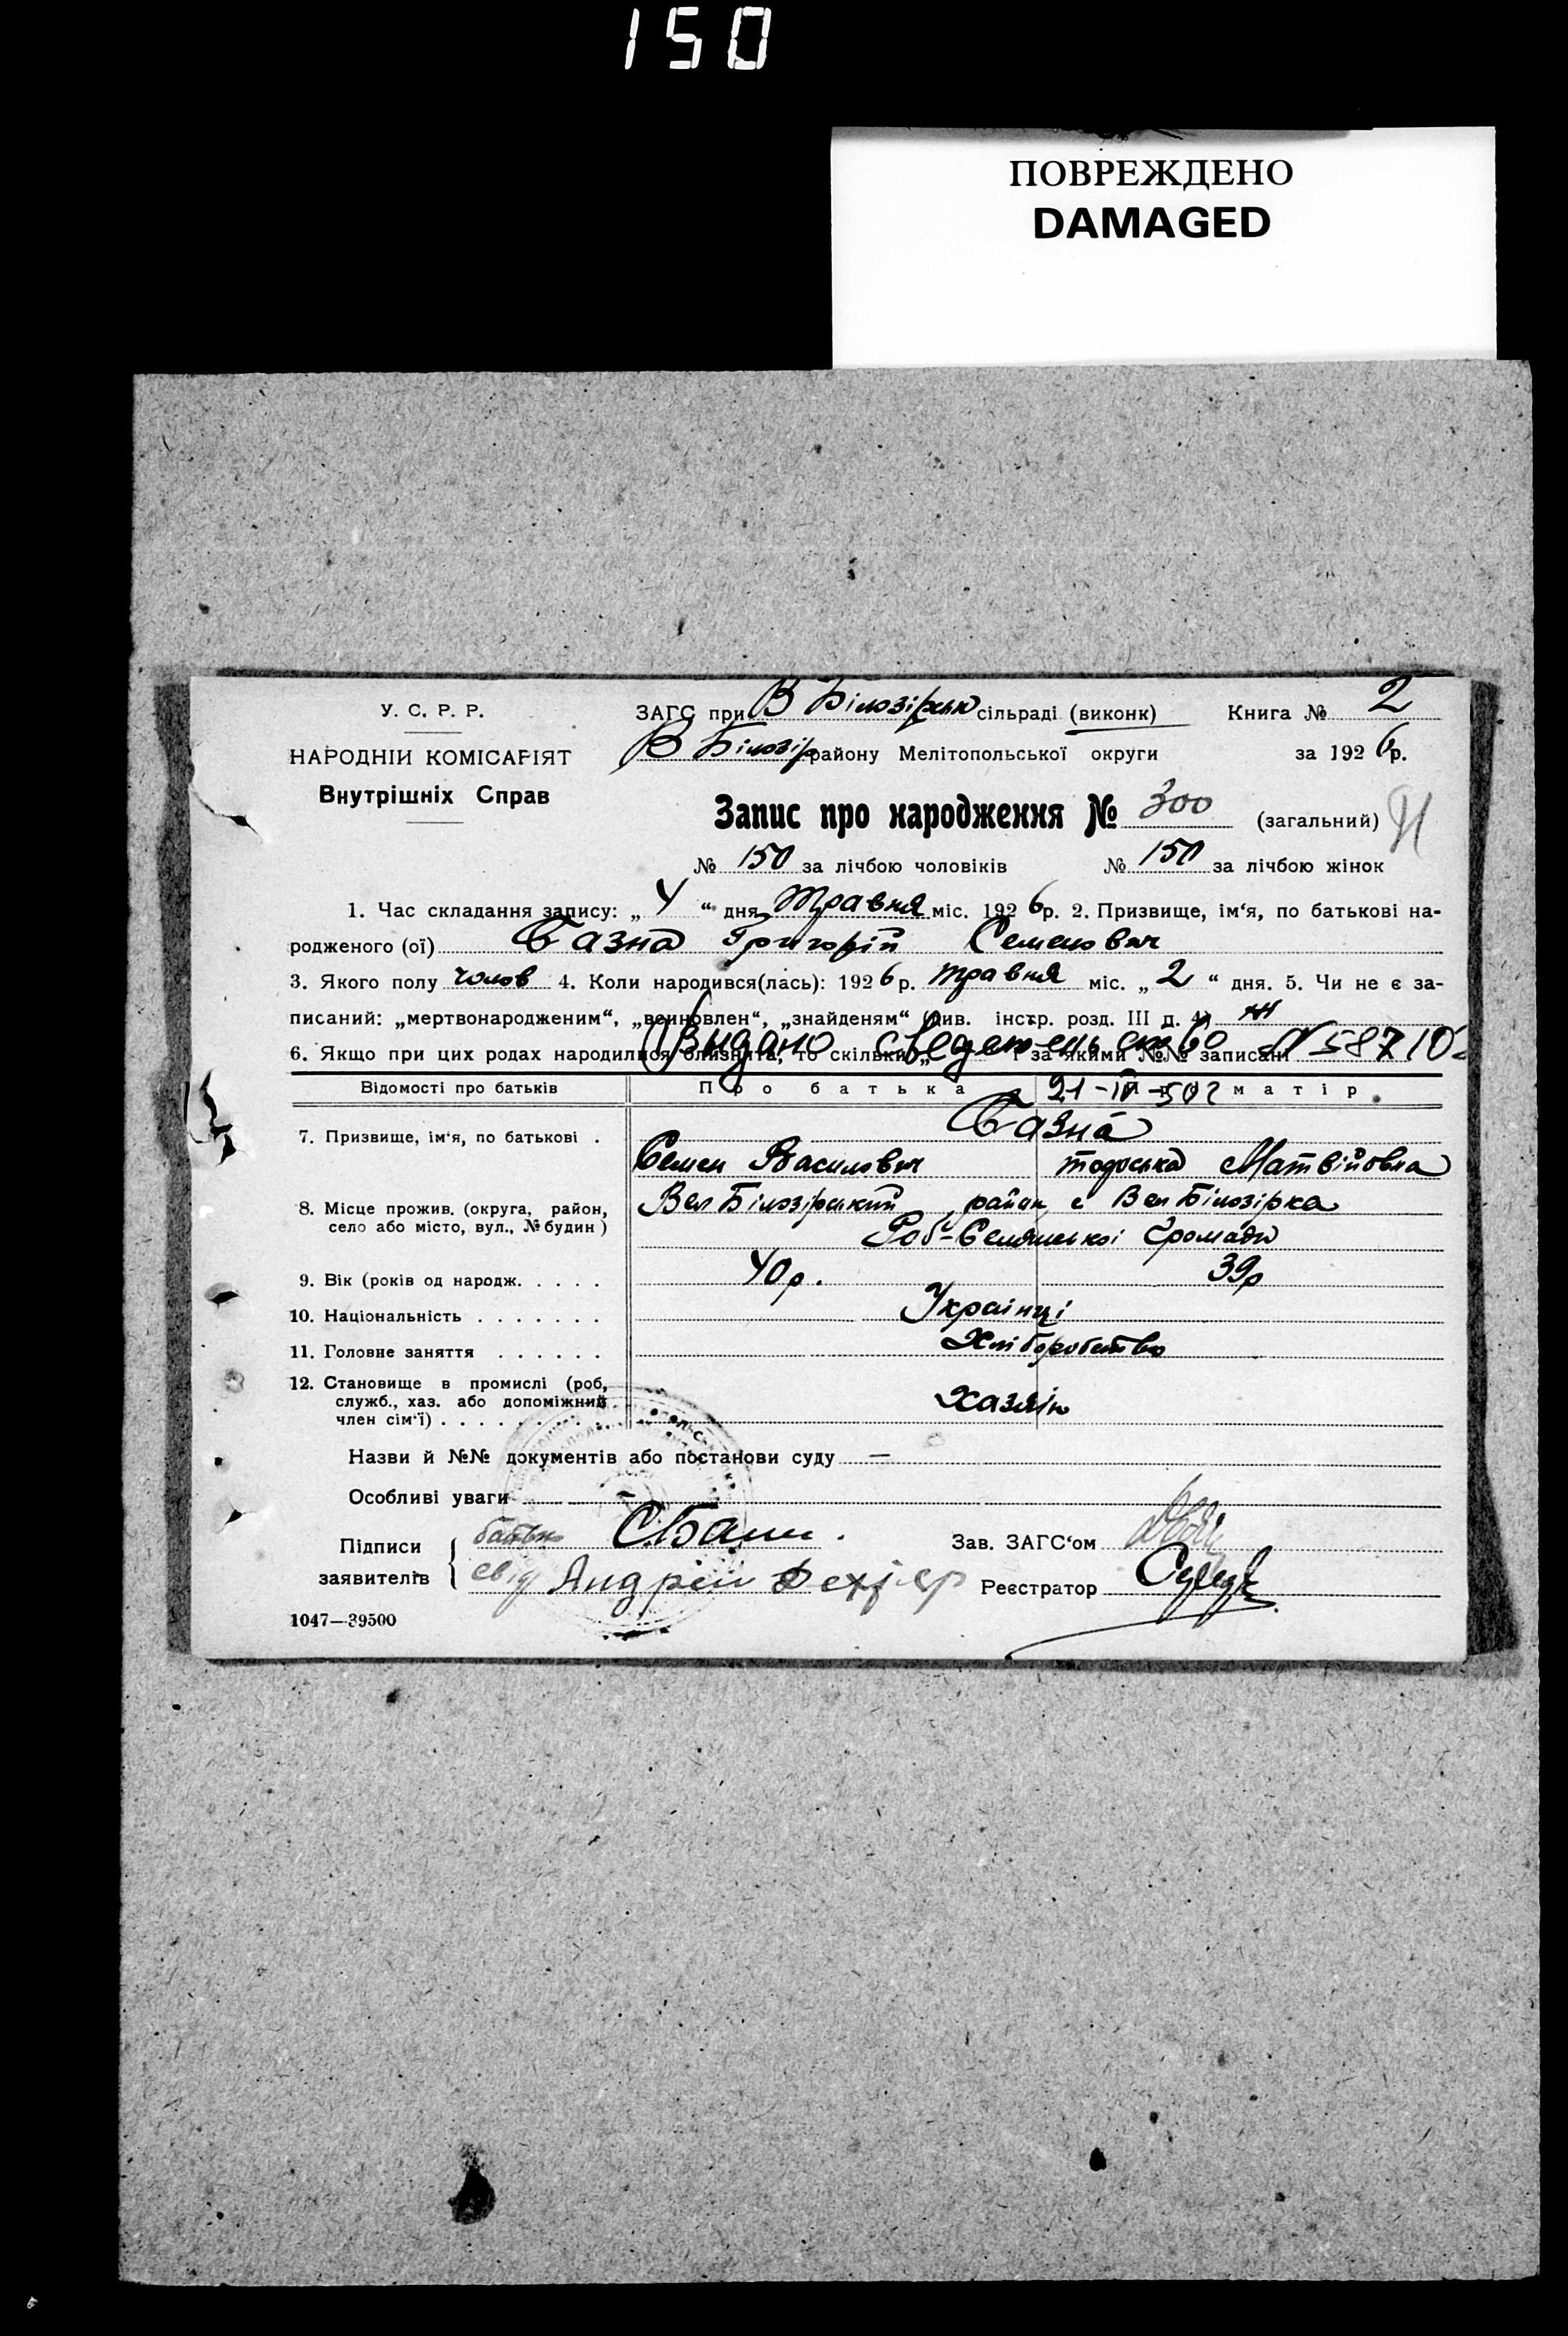 150
ПОВРЕЖДЕНО
DAMAGED
У. С. Р. Р.
НАРОДНІЙ КОМІСАРІЯТ
Внутрішніх Справ
ЗАГС при В Білозірськ сільраді (виконк) Книга № 2
В Білозір району Мелітопольської округи за 1926 р.
Запис про народження № 300 (загальний)
№ 150 за лічбою чоловіків № 150 за лічбою жінок
1. Час складання запису: „ 4 “ дня Травня міс. 1926 р. 2. Призвище, ім‘я, по батькові на-
родженого (ої) Базна Григорій Семенович
3. Якого полу чолов 4. Коли народився(лась): 1926 р. травня міс. „ 2 “ дня. 5. Чи не є за-
писаний: „мертвонародженим“, „всиновлен“, „знайденям“ (див. інстр. розд. III д. 4)
6. Якщо при цих родах народилися близнята, то скільки „ і за якими №№ записані
Видано сведетельство № 58710
21-IV-50г
Відомості про батьків Про батька матір
7. Призвище, ім‘я, по батькові .
Базна
Семен Василович тодоська Матвійовна
8. Місце прожив. (округа, район,
село або місто, вул., № будин )
Вел Білозірський район с Вел Білозірка
Роб-Селянської Громади
9. Вік (років од народж. . . . . 40 р. 39 р
10. Національність . . . . . . . Українці
11. Головне заняття . . . . . . Хліборобство
12. Становище в промислі (роб,
служб., хаз. або допоміжний
член сім‘ї) . . . . . . . . . хазяін
Назви й №№ документів або постанови суду —
Особливі уваги –
Підписи
заявителів
батько
свід Андрей
Зав. ЗАГС‘ом
Реєстратор
1047—39500